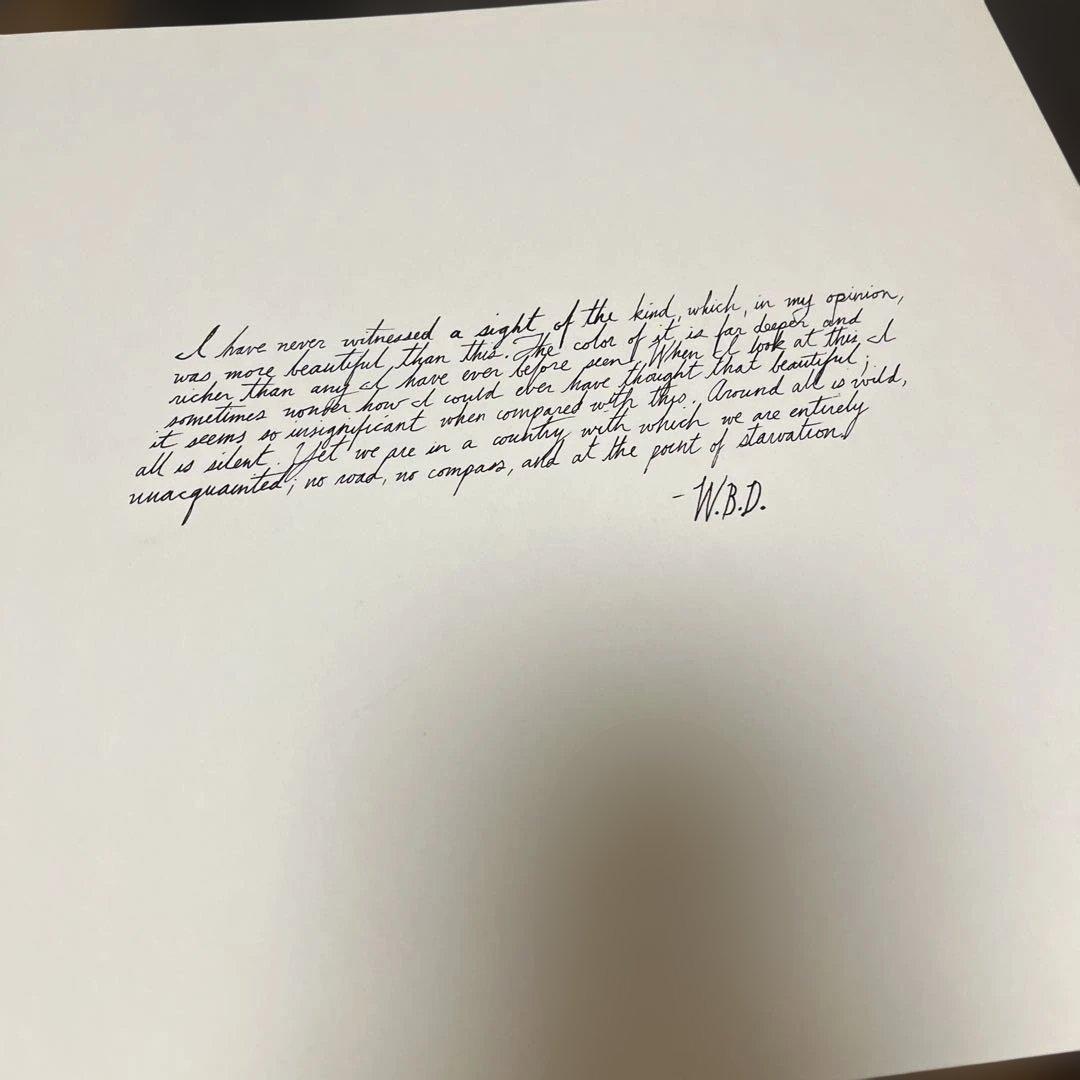 I have never witnessed a sight of the kind, which, in my opinion,
was more beautiful, than this. The color of it is far deeper, and
richer than any I have ever before seen. When I look at this, I
sometimes wonder how I could ever have thought that beautiful;
it seems so insignificant when compared with this. Around all is wild,
all is silent. Yet we are in a country with which we are entirely
unacquainted; no road, no compass, and at the point of starvation.
- W.B.D.